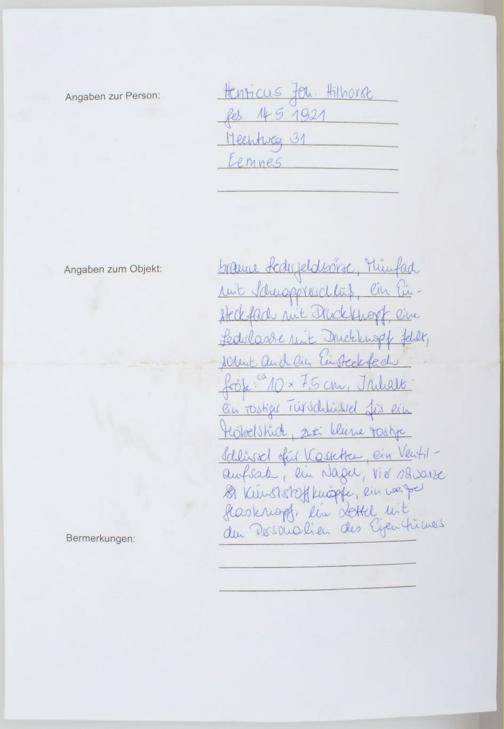 Angaben zur Person:
Henricus Joh. Hilhorst
geb. 14 5 1921
Meentweg 31
Eemnes
Angaben zum Objekt:
braune Ledergeldbörse, Münzfach
mit Schnappverschluß, ein Ein-
steckfach mit Druckknopf eine
Lederlasche mit Druckknopf fehlt,
somit auch ein Einsteckfach
Größe: ca 10 x 7,5 cm, Inhalt:
ein rostiger Türschlüssel für ein
Möbelstück, zwei kleine rostige
Schlüssel für Kassetten, ein Ventil-
aufsatz, ein Nagel, vier schwarze
Kunststoffknöpfe, ein weißer
Glasknopf, ein Zettel mit
den Personalien des Eigentümers
Bermerkungen: